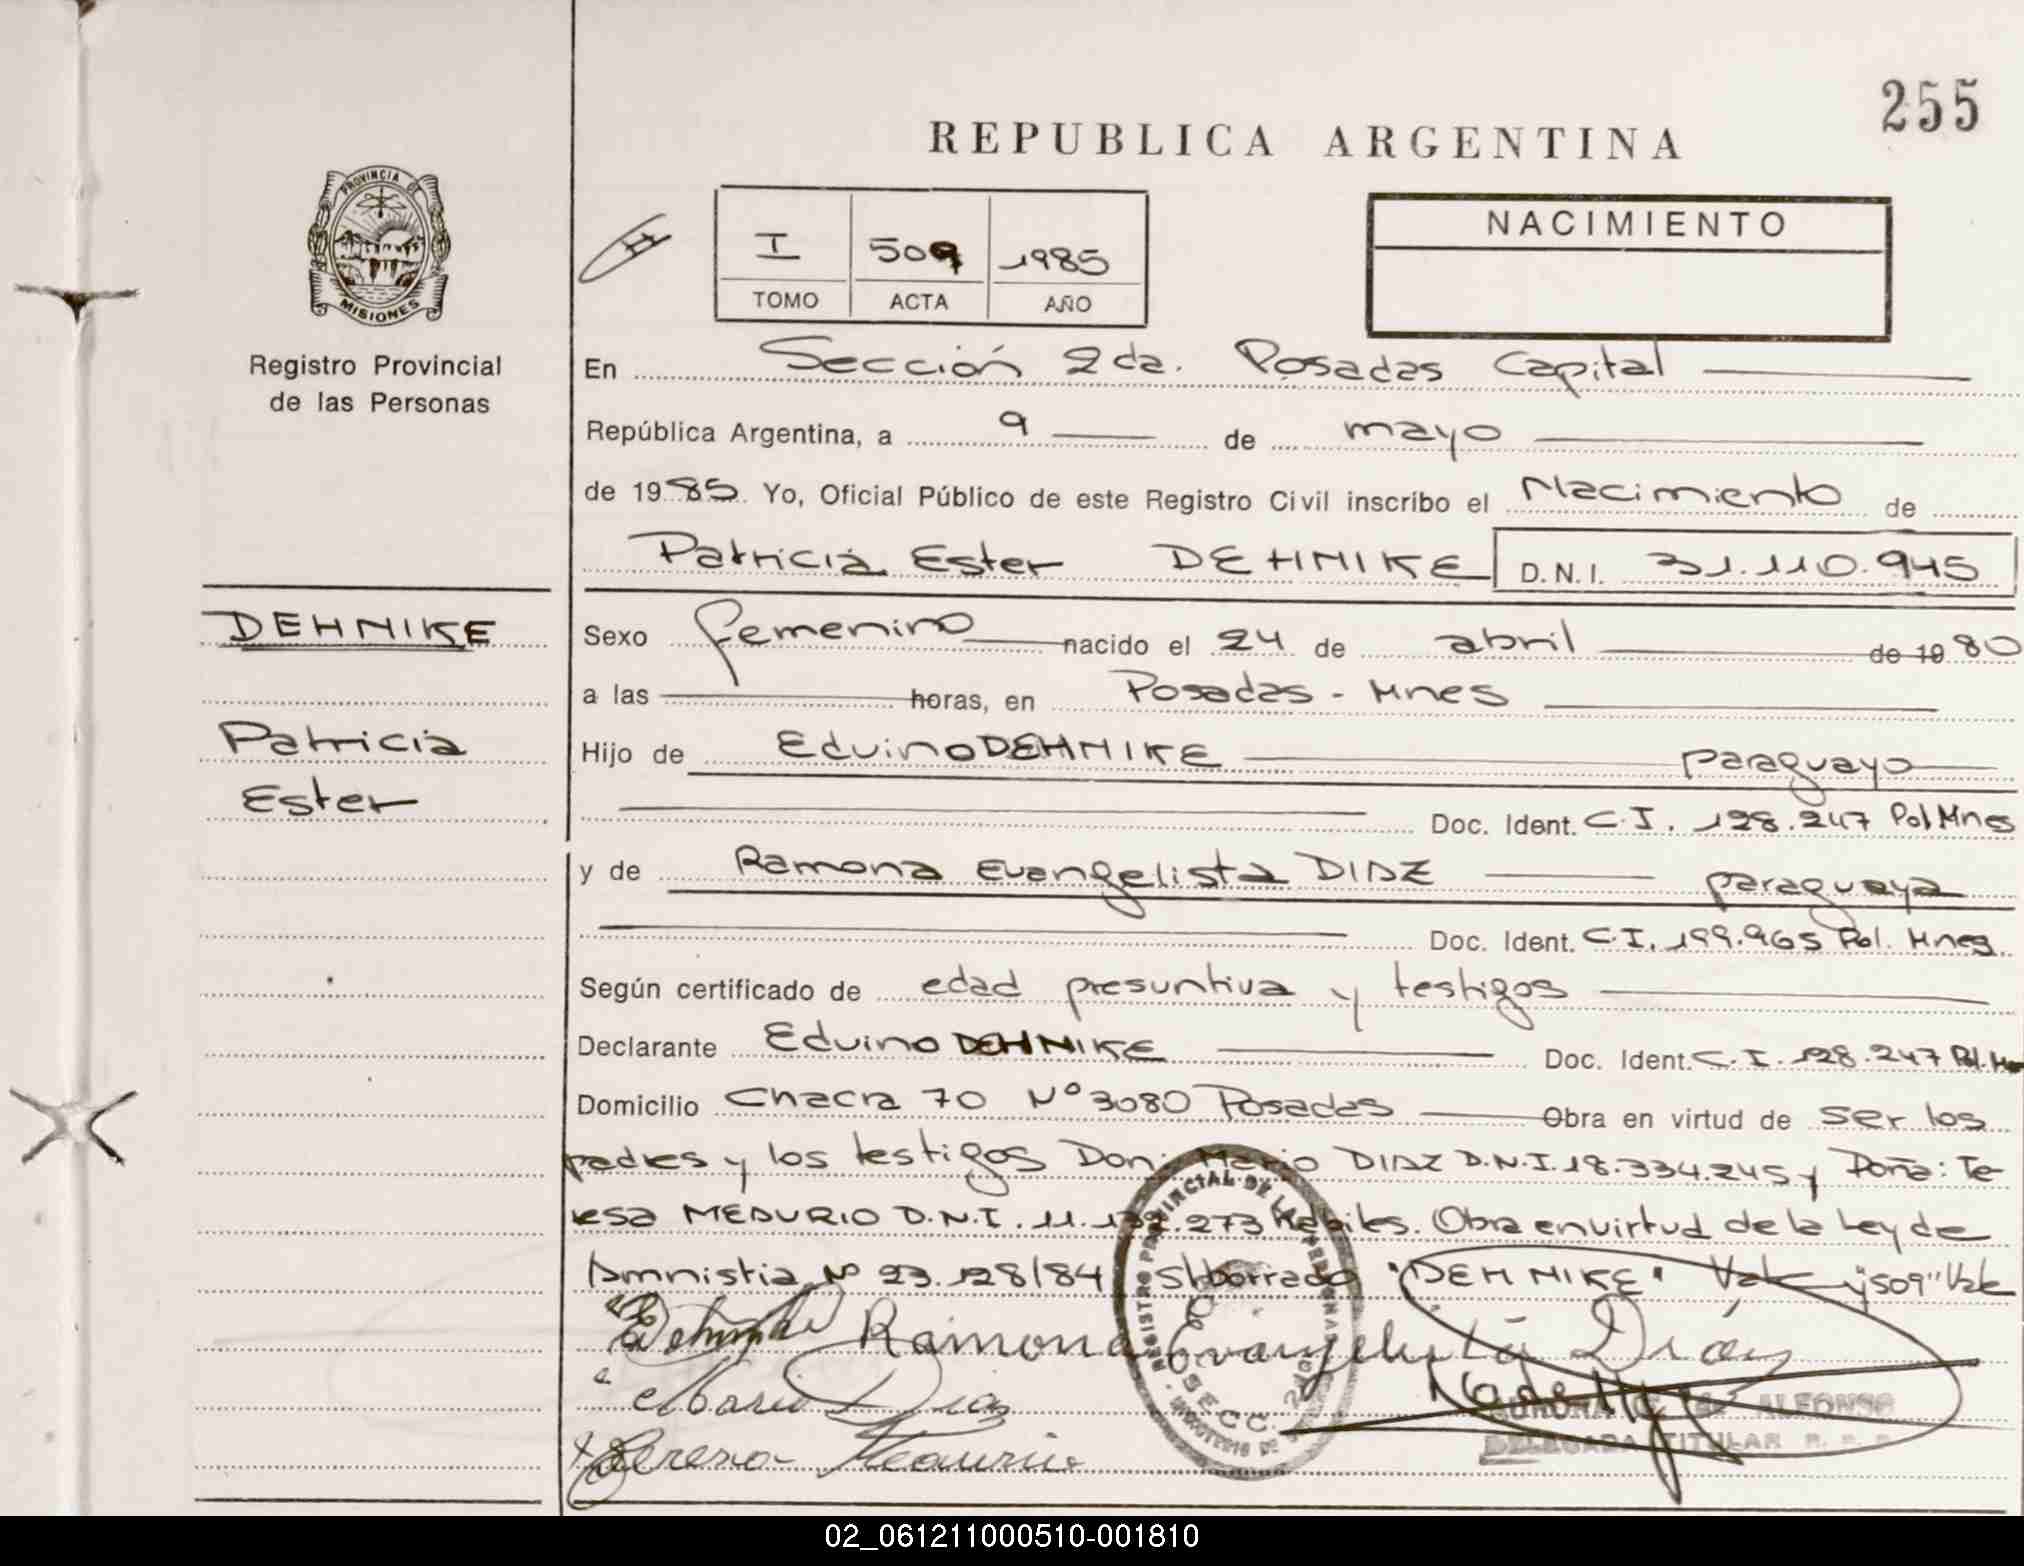 255
REPUBLICA ARGENTINA
PROVINCIA DE
MISIONES
Registro Provincial
de las Personas
I 509 1985
TOMO ACTA AÑO
NACIMIENTO
En Sección 2da. Posadas Capital
República Argentina, a 9 de mayo
de 1985 Yo, Oficial Público de este Registro Civil inscribo el Nacimiento de
Patricia Ester DEHNIKE D.N.I. 31.110.945
DEHNIKE
Patricia
Ester
Sexo femenino nacido el 24 de abril de 1980
a las horas, en Posadas - Mnes
Hijo de Eduino DEHNIKE paraguayo
Doc. Ident. C.I. 128.247 Pol Mnes
y de Ramona Evangelista DIAZ paraguaya
Doc. Ident. C.I. 199.965 Pol. Mnes.
Según certificado de edad presuntiva y testigos
Declarante Eduino DEHNIKE Doc. Ident. C.I. 128.247 Pol.
Domicilio Chacra 70 Nº 3080 Posadas Obra en virtud de ser los
padres y los testigos Don: Mario DIAZ D.N.I. 18.334.245 y Doña: Te-
resa MEDURIO D.N.I. 11. .273 habiles. Obra en virtud de la Ley de
Amnistia Nº 23.128/84 S/borrado "DEHNIKE" Vale y "509" Vale
Ramona Evangelista Diáz
Mario Diaz
Teresa
REGISTRO PROVINCIAL DE LAS PERSONAS
SECC. 2da
ALFONSO
DELEGADA TITULAR R. P. P.
02_061211000510-001810